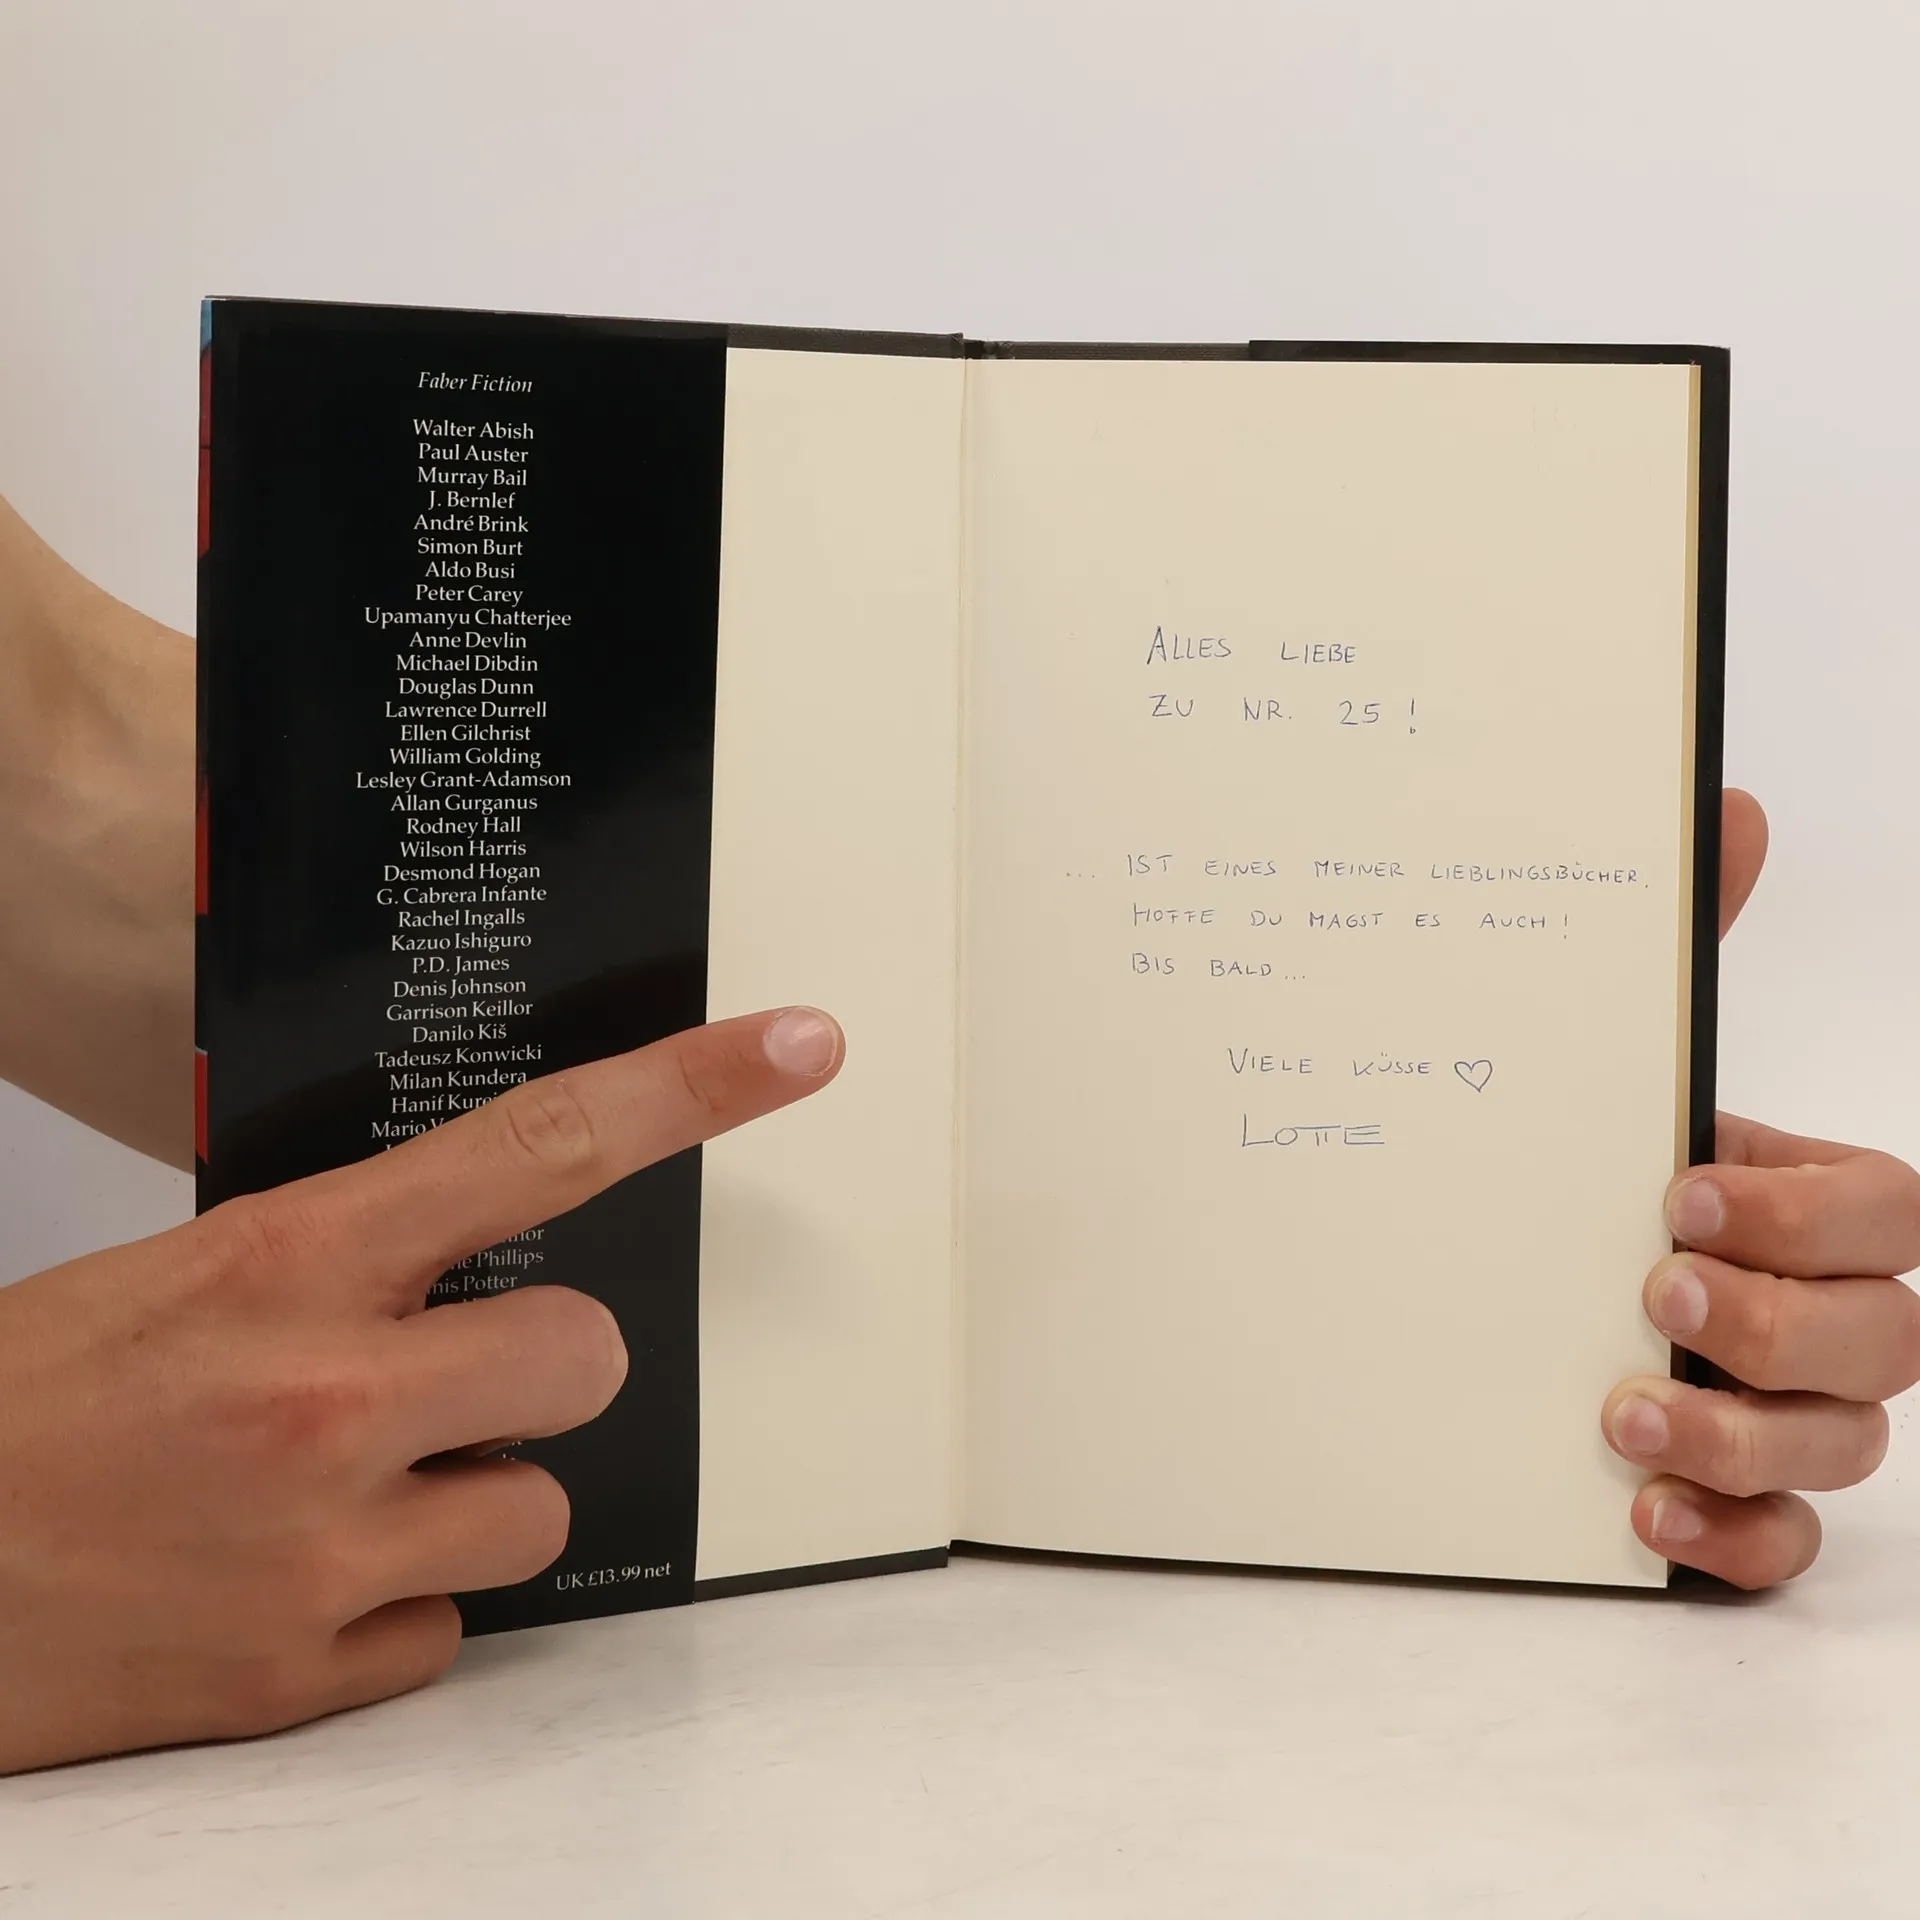 Faber Fiction
Walter Abish
Paul Auster
Murray Bail
J. Bernlef
André Brink
Simon Burt
Aldo Busi
Peter Carey
Upamanyu Chatterjee
Anne Devlin
Michael Dibdin
Douglas Dunn
Lawrence Durrell
Ellen Gilchrist
William Golding
Lesley Grant-Adamson
Allan Gurganus
Rodney Hall
Wilson Harris
Desmond Hogan
G. Cabrera Infante
Rachel Ingalls
Kazuo Ishiguro
P.D. James
Denis Johnson
Garrison Keillor
Danilo Kiš
Tadeusz Konwicki
Milan Kundera
Hanif
Mario
Phillips
Potter
UK £13.99 net
ALLES LIEBE
ZU NR. 25!
... IST EINES MEINER LIEBLINGSBÜCHER.
HOFFE DU MAGST ES AUCH!
BIS BALD...
VIELE KÜSSE ♡
LOTTE